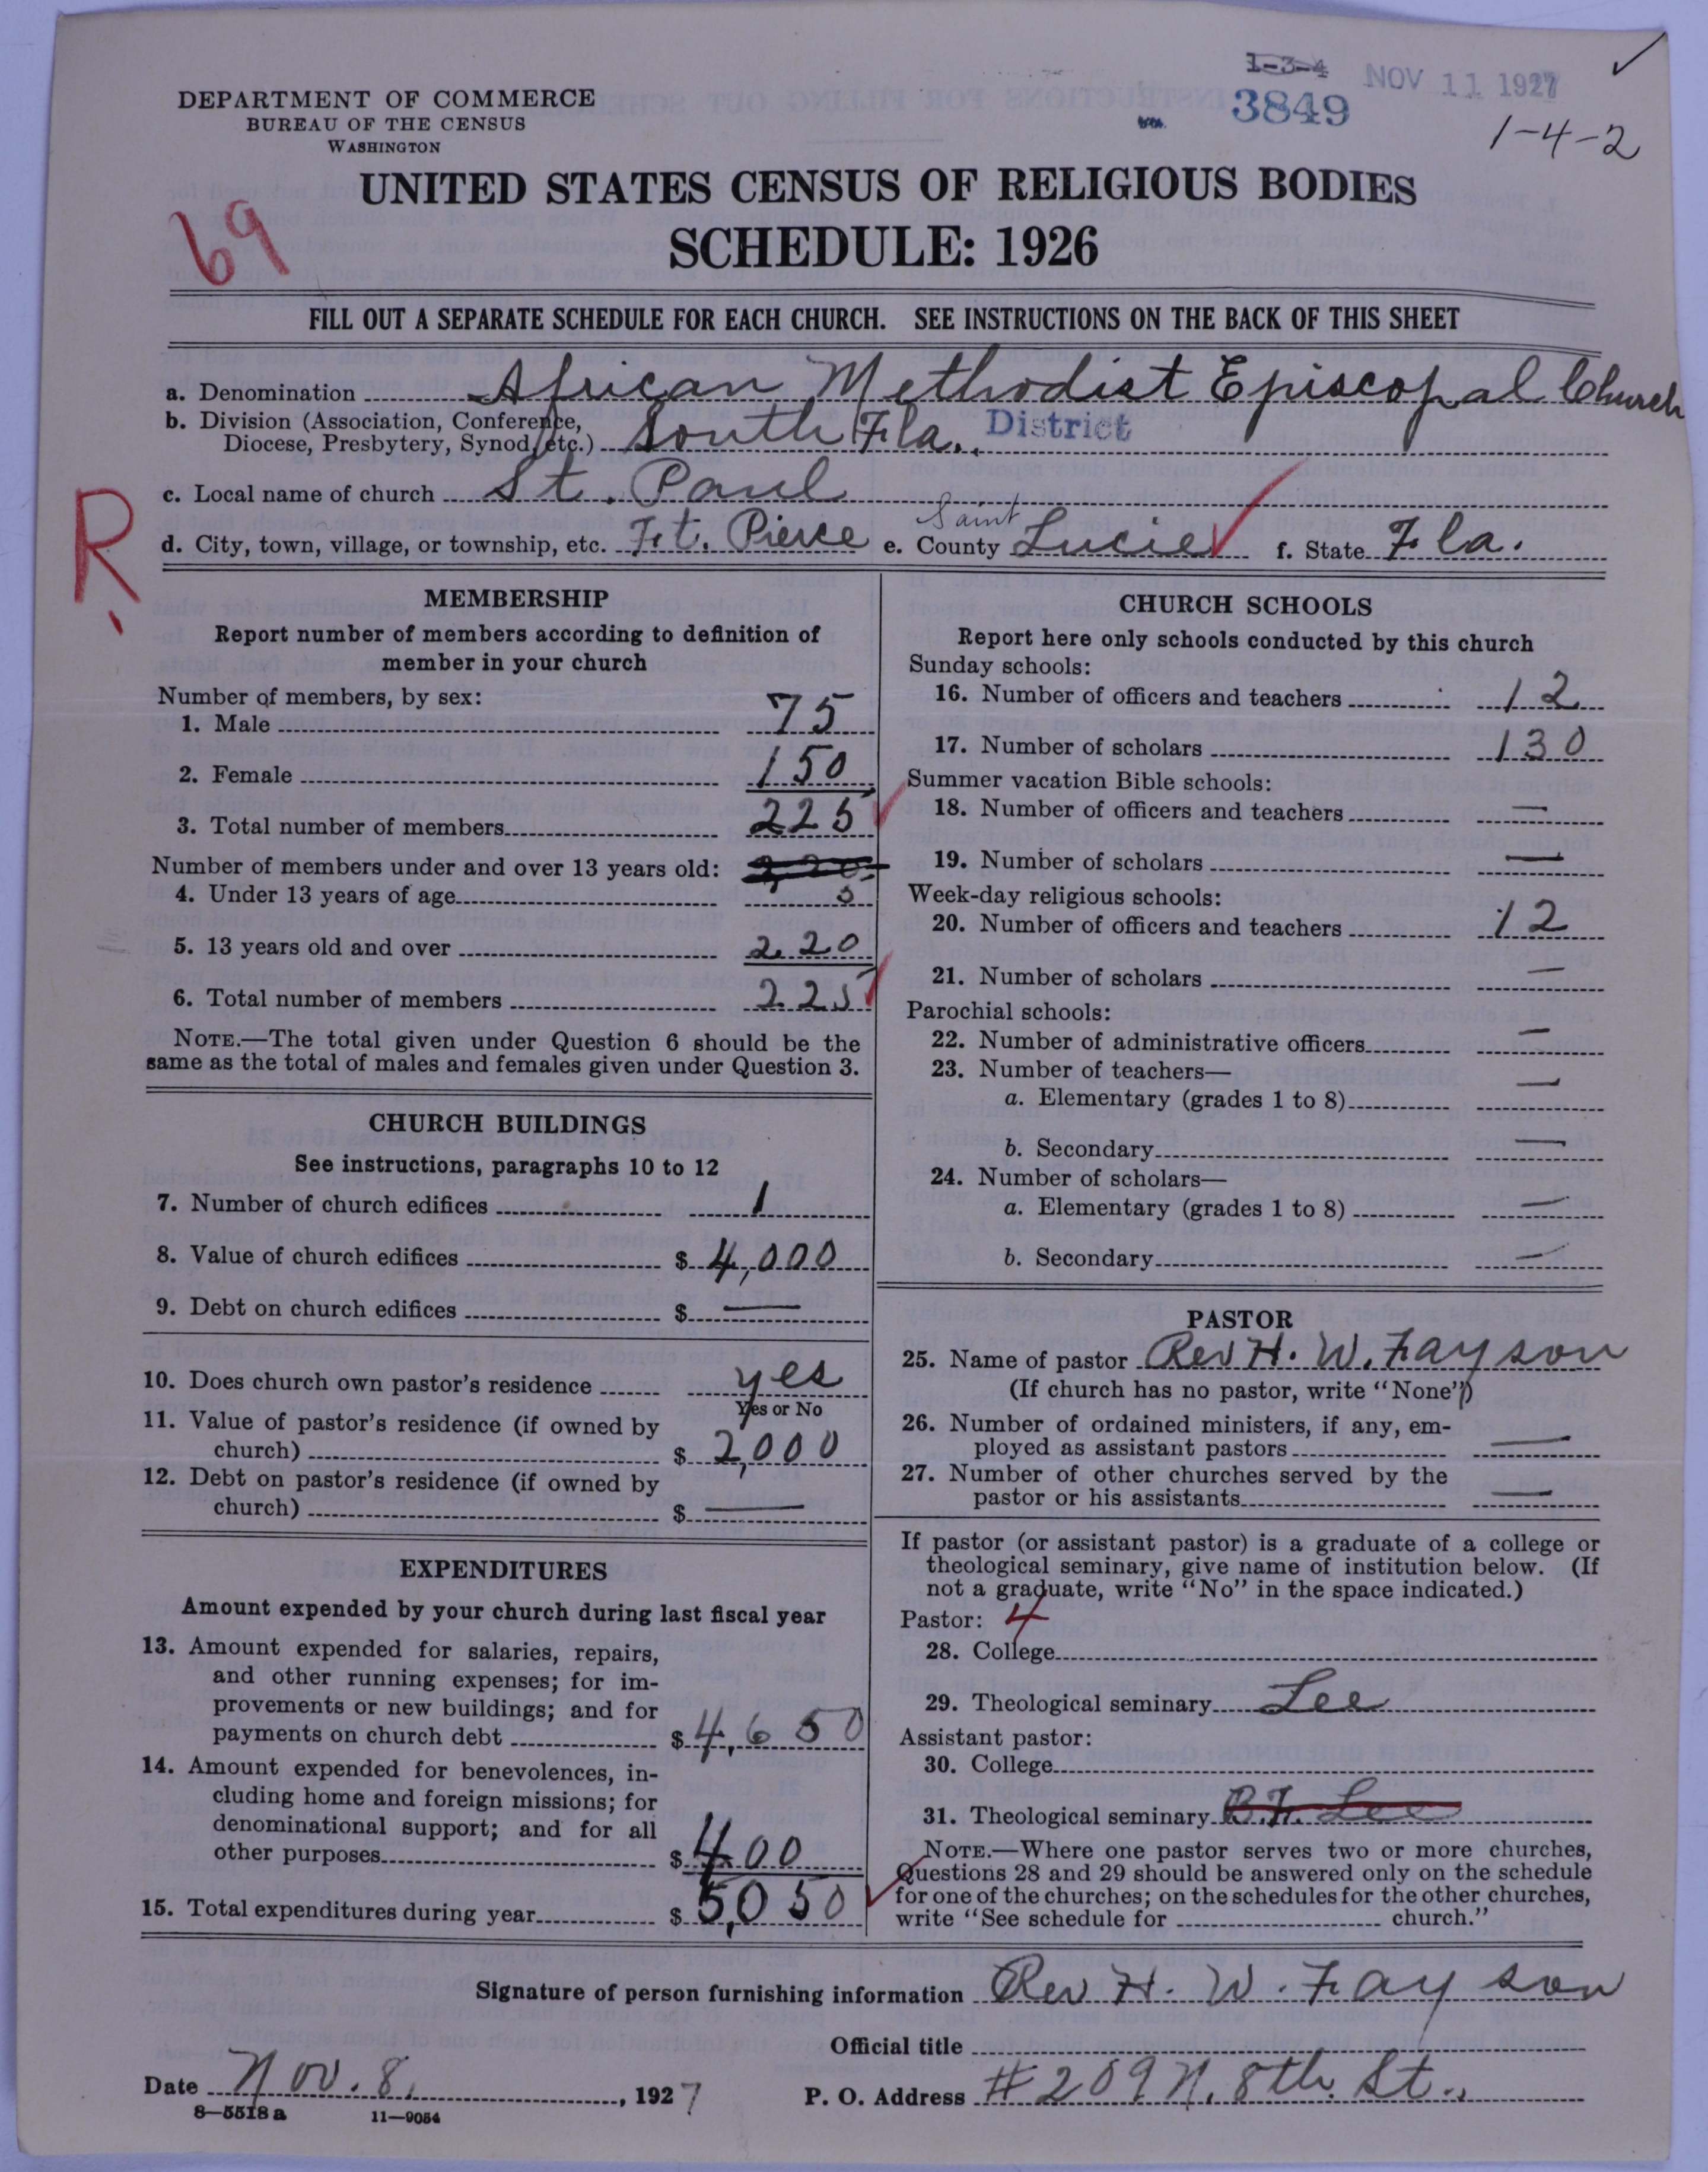 1-3-4
NOV 11 1927
3849
1-4-2
DEPARTMENT OF COMMERCE
BUREAU OF THE CENSUS
WASHINGTON
UNITED STATES CENSUS OF RELIGIOUS BODIES
69
SCHEDULE: 1926
FILL OUT A SEPARATE SCHEDULE FOR EACH CHURCH. SEE INSTRUCTIONS ON THE BACK OF THIS SHEET
a. Denomination African Methodist Episcopal Church
b. Division (Association, Conference,
Diocese, Presbytery, Synod, etc.) South Fla. District
c. Local name of church St. Paul
R
d. City, town, village, or township, etc. Ft. Pierce e. County Saint Lucie f. State Fla.
MEMBERSHIP
Report number of members according to definition of
member in your church
Number of members, by sex:
1. Male 75
2. Female 150
3. Total number of members 225
Number of members under and over 13 years old: 220
4. Under 13 years of age 5
5. 13 years old and over 220
6. Total number of members 225
NOTE.—The total given under Question 6 should be the
same as the total of males and females given under Question 3.
CHURCH BUILDINGS
See instructions, paragraphs 10 to 12
7. Number of church edifices 1
8. Value of church edifices $ 4,000
9. Debt on church edifices $ —
10. Does church own pastor's residence yes
Yes or No
11. Value of pastor's residence (if owned by
church) $ 2,000
12. Debt on pastor's residence (if owned by
church) $ —
EXPENDITURES
Amount expended by your church during last fiscal year
13. Amount expended for salaries, repairs,
and other running expenses; for im-
provements or new buildings; and for
payments on church debt $ 4,650
14. Amount expended for benevolences, in-
cluding home and foreign missions; for
denominational support; and for all
other purposes $ 400
15. Total expenditures during year $ 5,050
CHURCH SCHOOLS
Report here only schools conducted by this church
Sunday schools:
16. Number of officers and teachers 12
17. Number of scholars 130
Summer vacation Bible schools:
18. Number of officers and teachers —
19. Number of scholars —
Week-day religious schools:
20. Number of officers and teachers 12
21. Number of scholars —
Parochial schools:
22. Number of administrative officers —
23. Number of teachers—
a. Elementary (grades 1 to 8) —
b. Secondary —
24. Number of scholars—
a. Elementary (grades 1 to 8) —
b. Secondary —
PASTOR
25. Name of pastor Rev H. W. Fayson
(If church has no pastor, write "None")
26. Number of ordained ministers, if any, em-
ployed as assistant pastors —
27. Number of other churches served by the
pastor or his assistants —
If pastor (or assistant pastor) is a graduate of a college or
theological seminary, give name of institution below. (If
not a graduate, write "No" in the space indicated.)
Pastor: 4
28. College
29. Theological seminary Lee
Assistant pastor:
30. College
31. Theological seminary B.F. Lee
NOTE.—Where one pastor serves two or more churches,
Questions 28 and 29 should be answered only on the schedule
for one of the churches; on the schedules for the other churches,
write "See schedule for church."
Signature of person furnishing information Rev H. W. Fayson
Official title
Date Nov. 8, 1927 P. O. Address #209 N. 8th. St.
8—5518 a 11—9054